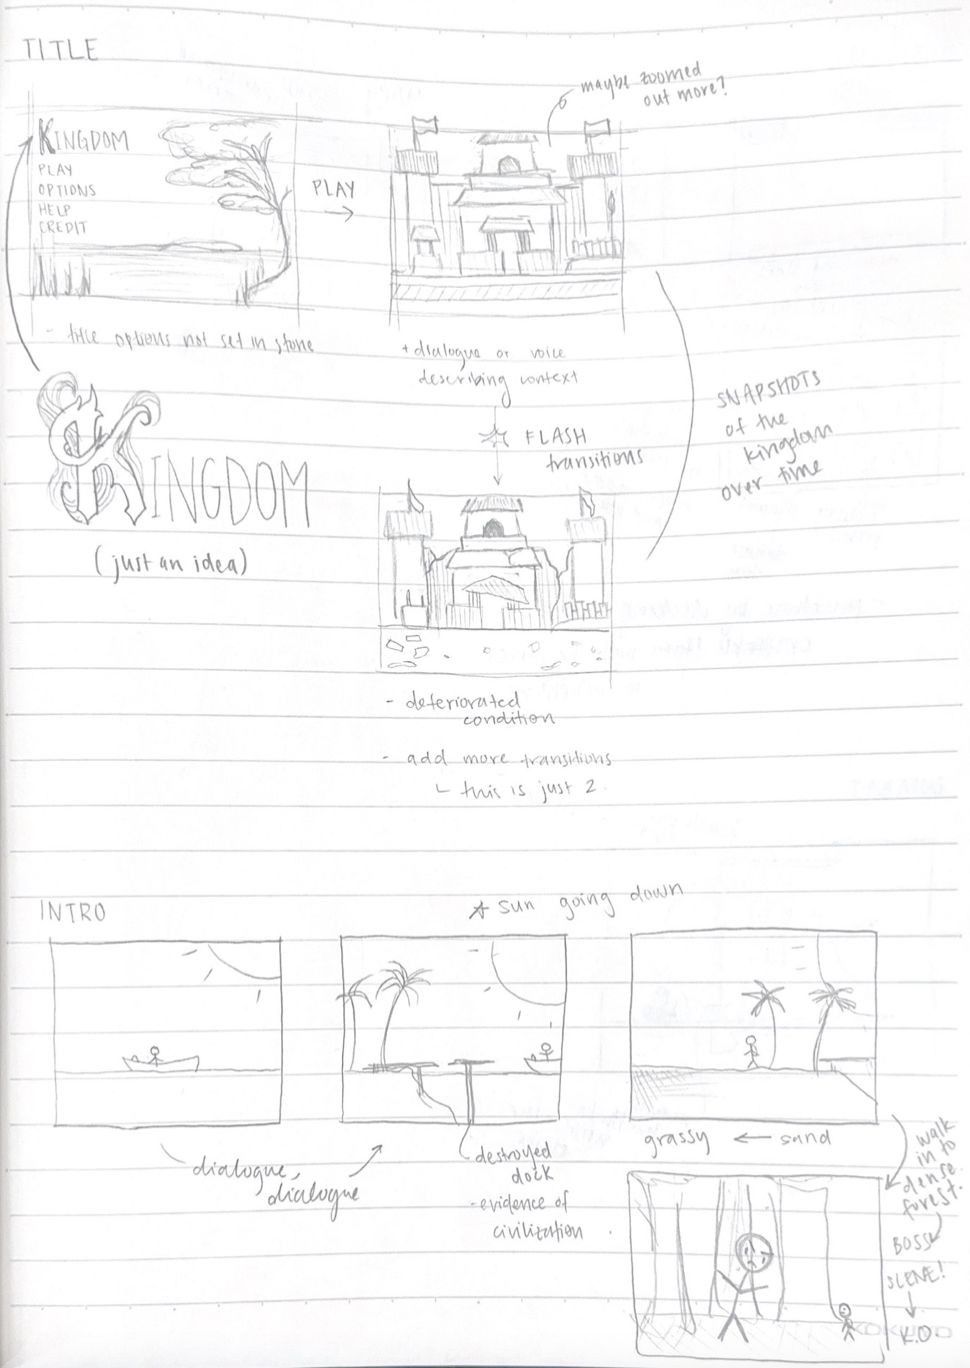 TITLE
maybe zoomed
out more?
KINGDOM
PLAY
OPTIONS
HELP
CREDIT
PLAY
- title options not set in stone
+ dialogue or voice
describing context
FLASH
transitions
SNAPSHOTS
of the
kingdom
over time
KINGDOM
(just an idea)
- deteriorated
condition
- add more transitions
this is just 2.
INTRO
sun going down
dialogue,
dialogue
destroyed
dock
- evidence of
civilization
grassy ← sand
walk
in to
dense
forest.
BOSS
SCENE!
K.O.
KOKUYO